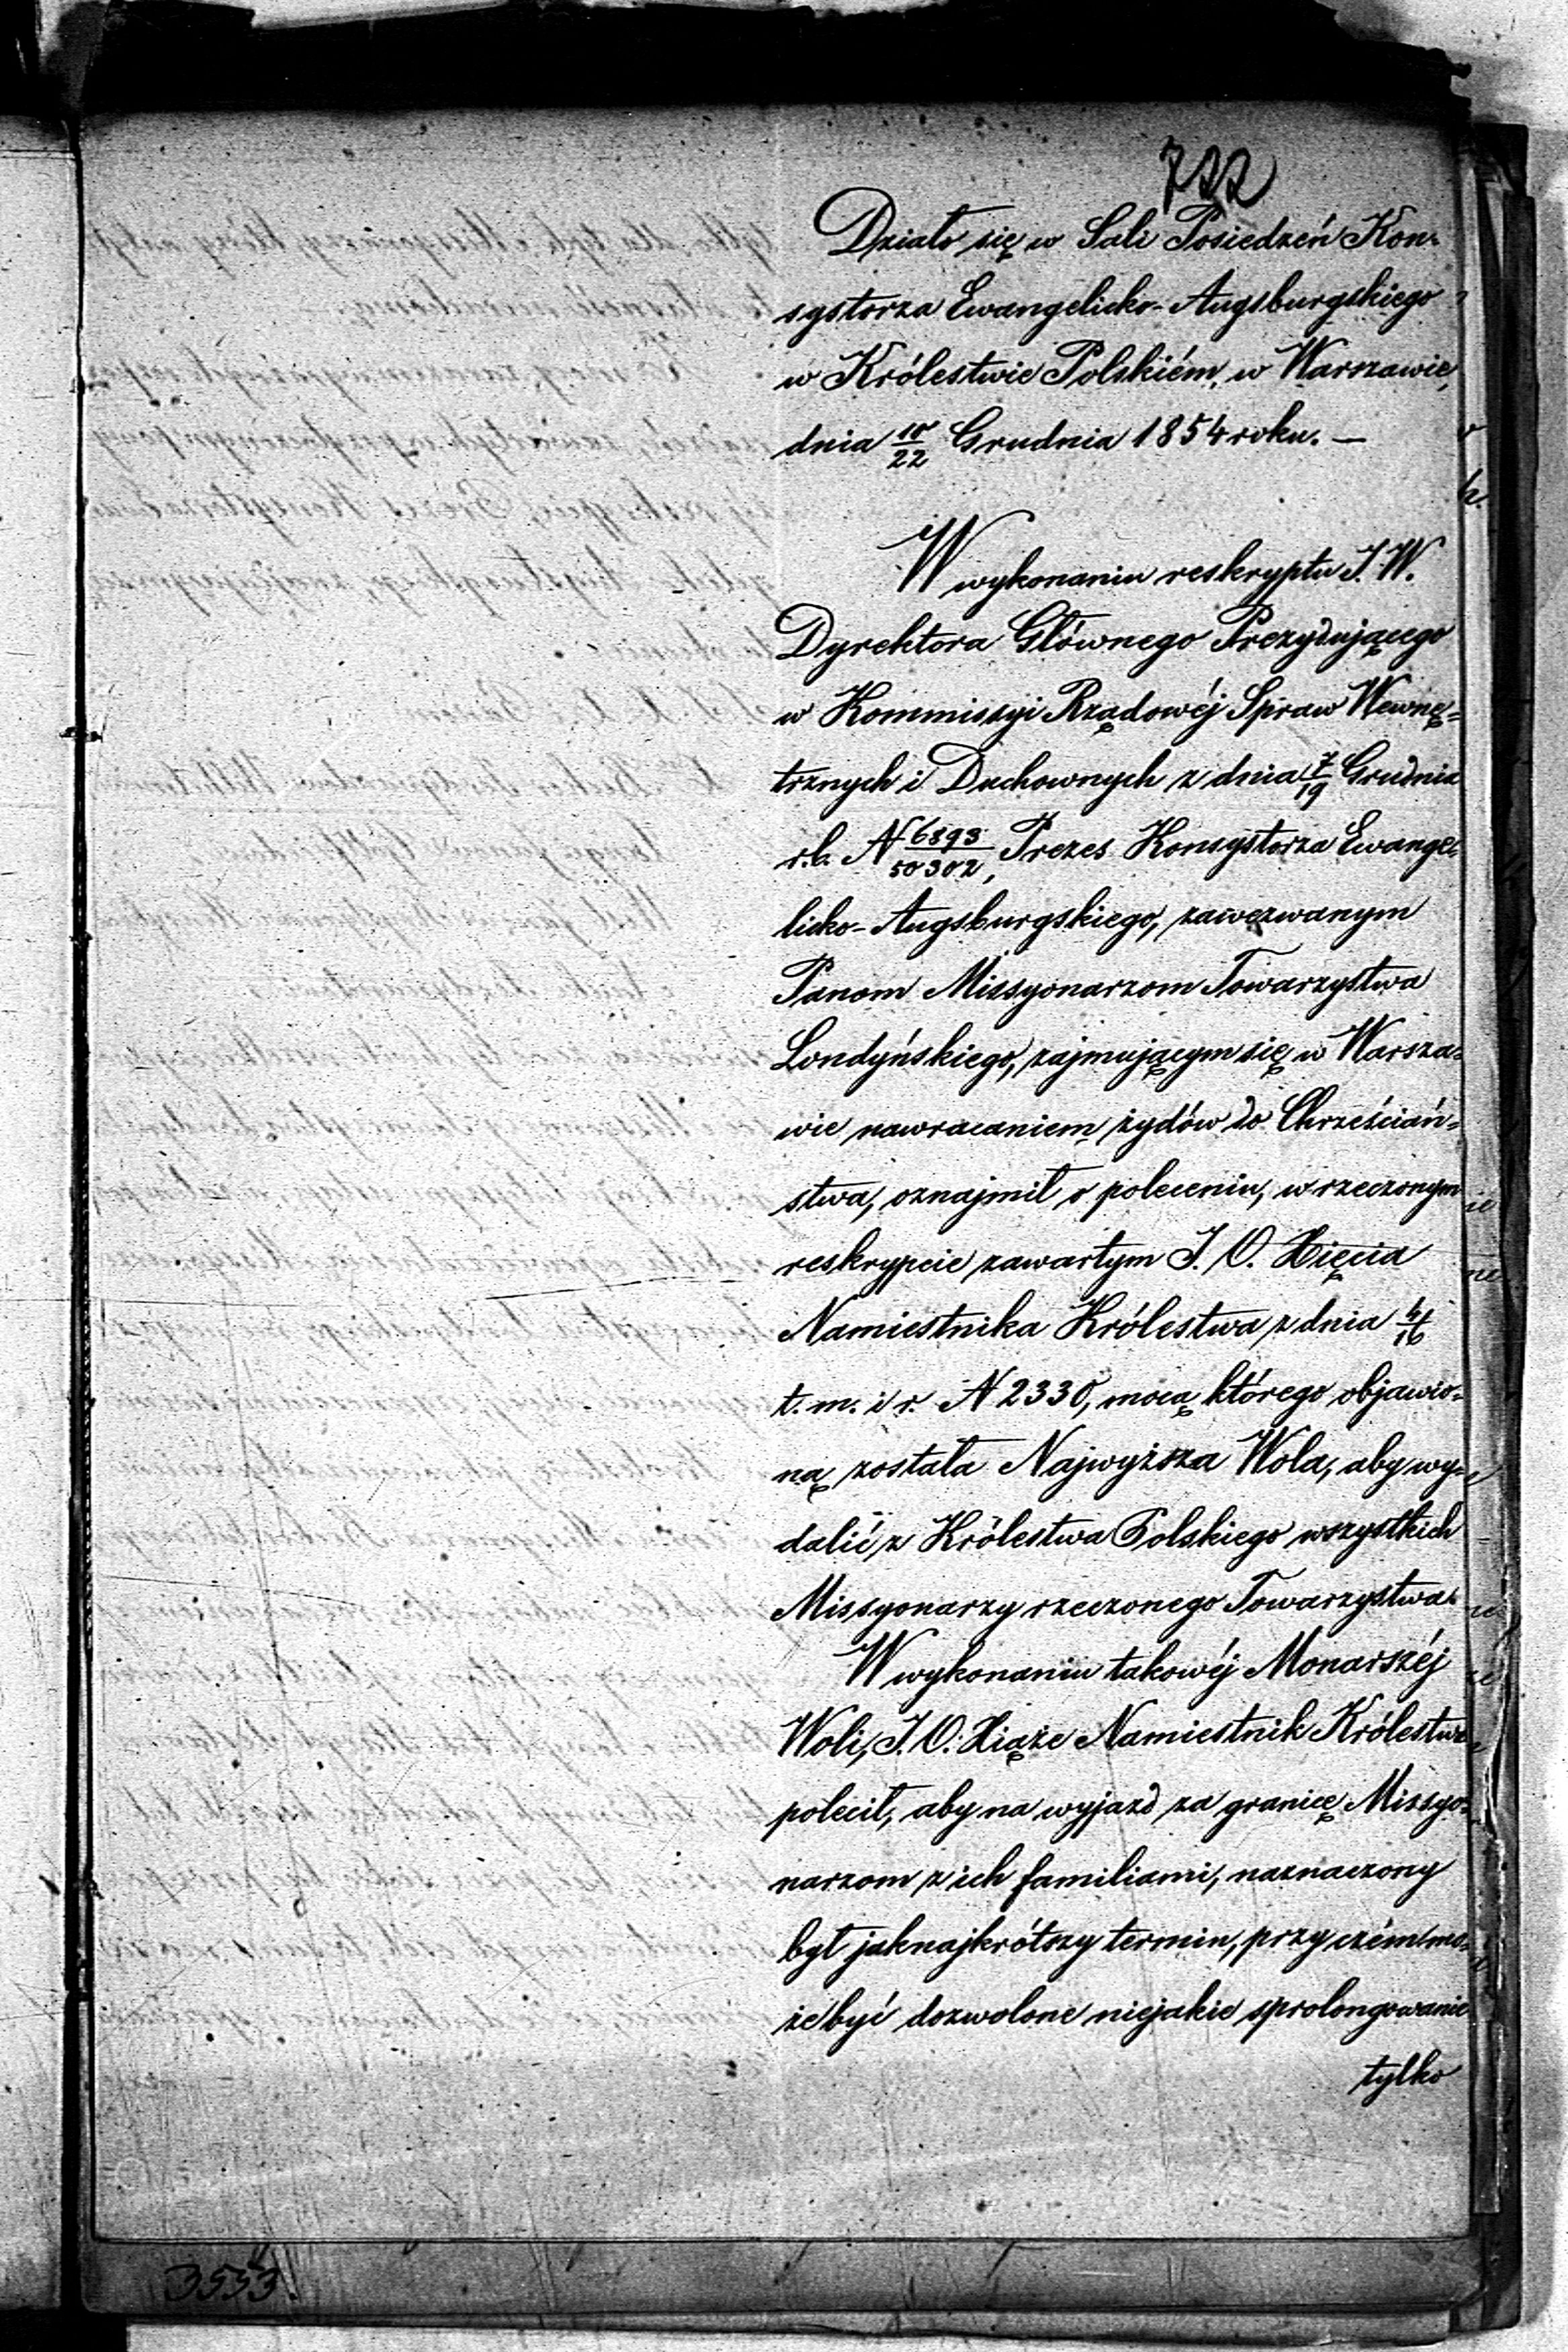 722
Działo się w Sali Posiedzeń Kon-
systorza Ewangelicko-Augsburgskiego
w Królestwie Polskiém, w Warszawie,
dnia 10/22 Grudnia 1854 roku. —
W wykonaniu reskryptu J. W.
Dyrektora Głównego Prezydującego
w Kommissyi Rządowéj Spraw Wewnę=
trznych i Duchownych z dnia 7/19 Grudnia
r.b. N 6893/50302, Prezes Konsystorza Ewange=
licko-Augsburgskiego, zawezwanym
Panom Missyonarzom Towarzystwa
Londyńskiego, zajmującym się w Warsza=
wie nawracaniem żydów do Chrześciań=
stwa, oznajmił o poleceniu, w rzeczonym
reskrypcie zawartym J. O. Xięcia
Namiestnika Królestwa z dnia 4/16
t. m. i r. N 2330, mocą którego objawio=
ną została Najwyższa Wola, aby wy=
dalić z Królestwa Polskiego wszystkich
Missyonarzy rzeczonego Towarzystwa.
W wykonaniu takowéj Monarszéj
Woli, J. O. Xiąże Namiestnik Królestwa
polecił, aby na wyjazd za granicę Missyo=
narzom z ich familiami, naznaczony
był jaknajkrótszy termin, przy czém mo=
że być dozwolone niejakie sprolongowanie
tylko
3553.